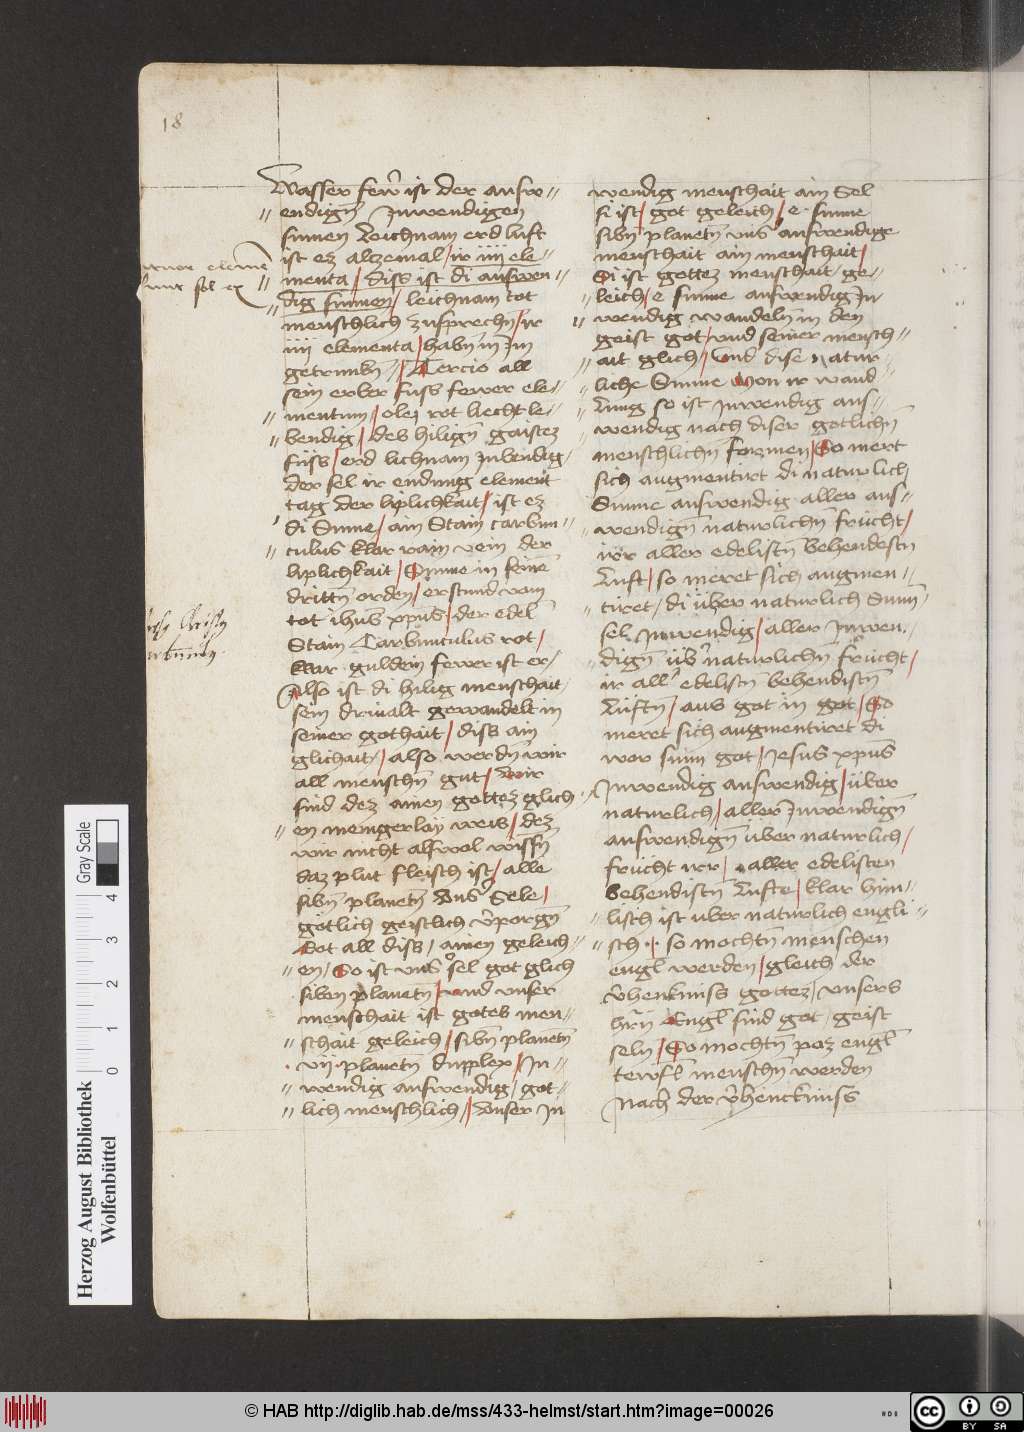 18
Wasser fewr ist der ausw〃
〃 endigen Inwendigen
sunnen Leichnam erd luft
ist ez alzemal / ir iiii ele〃
〃 menta / diss ist di auswen〃
〃 dig sunnen / leichnam tot
menschlich zusprechn̄ / ir
iiii elementa / habn̄ in Im
getrunkn̄ / Tercio all
sein erber fuss fewer ele〃
〃 mentum / olei rot liecht le〃
〃 bendig / des hilign̄ gaistez
füss / erd lichnam Inbendig /
der sel ir endung element
tag der liplichkait / ist ez
di Sunne / ain Stain carbun〃
〃 culus klar rain vein der
liplichkait / Sunne in seinē
drittn̄ orden / erstund vom
tot ihus xpus / der edel
Stain Carbunculus rot /
klar guldein fewer ist er /
Also ist di hilig menschait /
sein drivalt gewandelt in
seiner gothait / diss ain
glichait / also werdn̄ wir
all menschn̄ gut / Wir
sind dez ainen gottez glich
〃 en mengerlay weis / dez
wir nicht alswol wissn̄
daz plut fleisch ist / alle
sibn̄ planetn̄ Vns Sele /
gotlich geistlich v̄porgn̄
Got all diss / ainen geleich〃
〃 en / So ist vns sel got glich
siben planetn̄ / vnd vnser
menschait ist gotes men〃
〃 schait geleich / sibn̄ planetn̄
. vii . planetn̄ dupplex / In〃
〃 wendig auswendig / got〃
〃 lich menschlich / Vnser In
wendig menschait ain Sel
si ist / got geleich / e . sunne
sibn̄ planetn̄ vns auswendige
menschait ain menschait /
Si ist gottez menschait / ge〃
〃 leich / e sunne auswendig In
〃 wendig wandeln̄ in den
geist got / vnd seiner mensch〃
〃 ait glich / Vnd dise natur〃
〃 liche Sunne von ir wand〃
〃 lung so ist Inwendig aus〃
〃 wendig nach diser gotlichn̄
menschlichn̄ formen / So mert
sich augmentirt di naturlich
Sunne auswendig aller aus〃
〃 wendign̄ naturlichn̄ frücht /
irr aller edelistn̄ behendestn̄
Luft / so meret sich augmen〃
〃 tiret / di über naturlich Sunn
sel Inwendig / aller Inwen〃
〃 dign̄ üb naturlichn̄ frücht /
ir all edelistn̄ behendistn̄
Lüftn̄ / aus got in got / So
meret sich augmentiret di
wor sunn got / Jesus xpus
Inwendig auswendig / über
naturlich / aller Inwendign̄
auswendign̄ über naturlich /
frücht irr / aller edelisten
behendistn̄ Lufte / klar him〃
〃 lisch ist uber naturlich engli〃
〃 sch . so mochtn̄ menschen
engl werden / gleich der
v̄henknuss gottez / vnsers
hrn̄ Engl sind got / geist
seln / So mochtn̄ poz engl
tewfl menschn̄ werden
Nach der v̄hencknuss
Herzog August Bibliothek
Wolfenbüttel
Gray Scale
0 1 2 3 4
© HAB http://diglib.hab.de/mss/433-helmst/start.htm?image=00026
cc BY SA